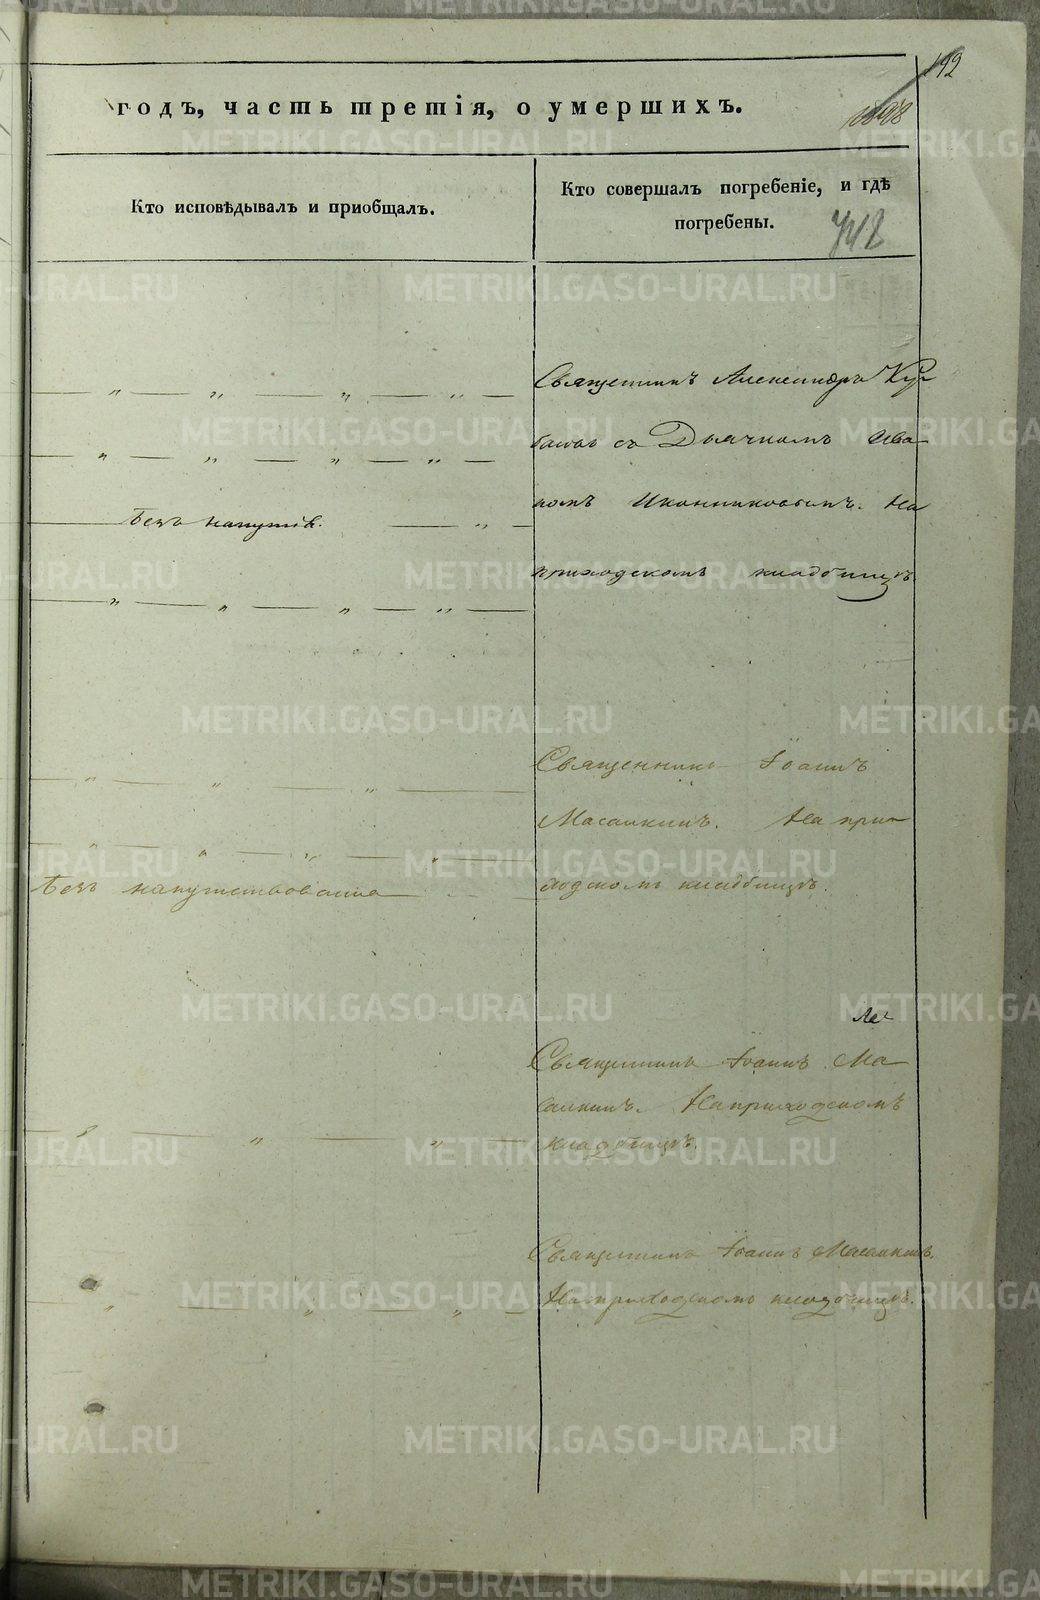 192
годъ, часть третія, о умершихъ.
Кто исповѣдывалъ и пріобщалъ.
Кто совершалъ погребеніе, и гдѣ
погребены.
748
Священникъ Александръ
съ Дьячкомъ Ива
номъ Иконниковымъ. На
Безъ напутів.
приходскомъ кладбищѣ
Священникъ Іоаннъ
Масалкинъ. На при
Безъ напутствованія
ходскомъ кладбищѣ.
Священникъ Іоаннъ Ма
салкинъ. На приходскомъ
кладбищѣ.
Священникъ Іоаннъ Масалкинъ.
На приходскомъ кладбищѣ.
METRIKI.GASO-URAL.RU